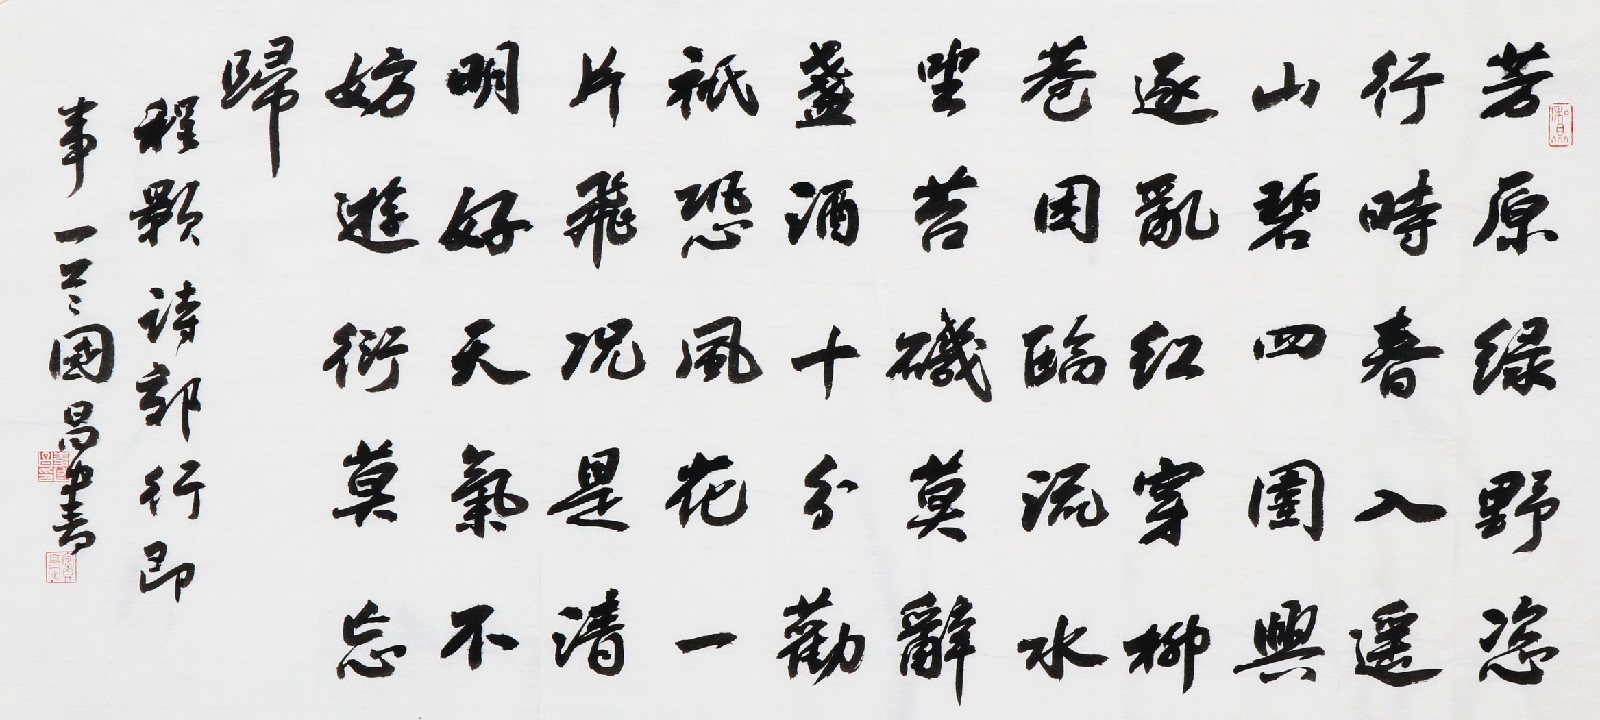 芳原绿野恣
行時春入遥
山碧四圍興
逐亂红穿柳
巷困臨流水
坐苔磯莫辭
盞酒十分勸
祇恐風花一
片飛况是清
明好天氣不
妨遊衍莫忘
歸
程颢詩郊行即
事一國昌書